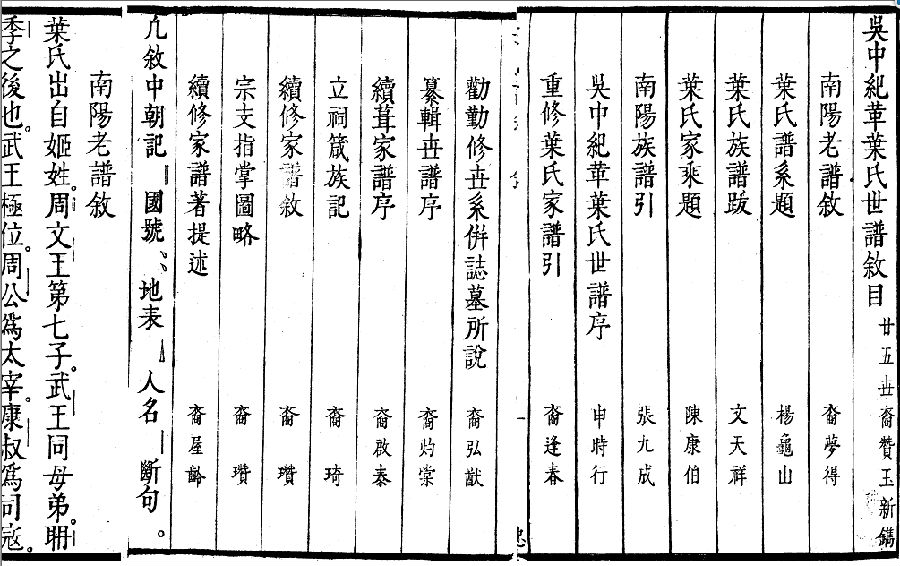 吳中紀革葉氏世譜敘目 廿五世裔贊玉新鐫
南陽老譜敘 裔夢得
葉氏譜系題 楊龜山
葉氏族譜跋 文天祥
葉氏家乘題 陳康伯
南陽族譜引 張九成
吳中紀革葉氏世譜序 申時行
重修葉氏家譜引 裔逢春
一
勸勤修世系併誌墓所說 裔弘猷
纂輯世譜序 裔灼棠
續葺家譜序 裔啟泰
立祠箴族記 裔琦
續修家譜敘 裔瓚
宗支指掌圖略 裔瓚
續修家譜著提述 裔屋齡
凡敘中朝記 國號 地表 人名 斷句。
南陽老譜敘
葉氏出自姬姓。周文王第七子。武王同母弟。耼
季之後也。武王極位。周公為太宰。康叔為司寇。